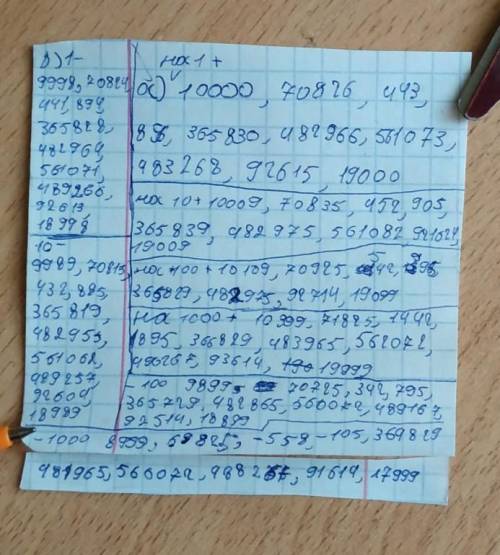 б) 1-
9998, 70824
441, 894
365828,
482964,
561071,
489266,
92613
18998
10-
9989, 70815,
432, 885,
365819,
482955,
561062,
489257,
92604
18989
на 1 +
а) 10000, 70826, 443,
896, 365830, 482966, 561073,
483268, 92615, 19000
на 10 + 10009, 70835, 452, 905,
365839, 482975, 561082, 921624,
19009
на 100 + 10109, 70925, 542, 995,
365929, 482975, 92714, 19099
на 1000 + 10999, 71825, 1442,
1895, 366829, 483965, 562072,
490267, 93614, 19999
-100 9899, 70725, 342, 795,
365729, 482865, 560072, 489167,
92514, 18899
-1000 8999, 69825, -558, -105, 369829
481965, 560072, 488267, 91614, 17999